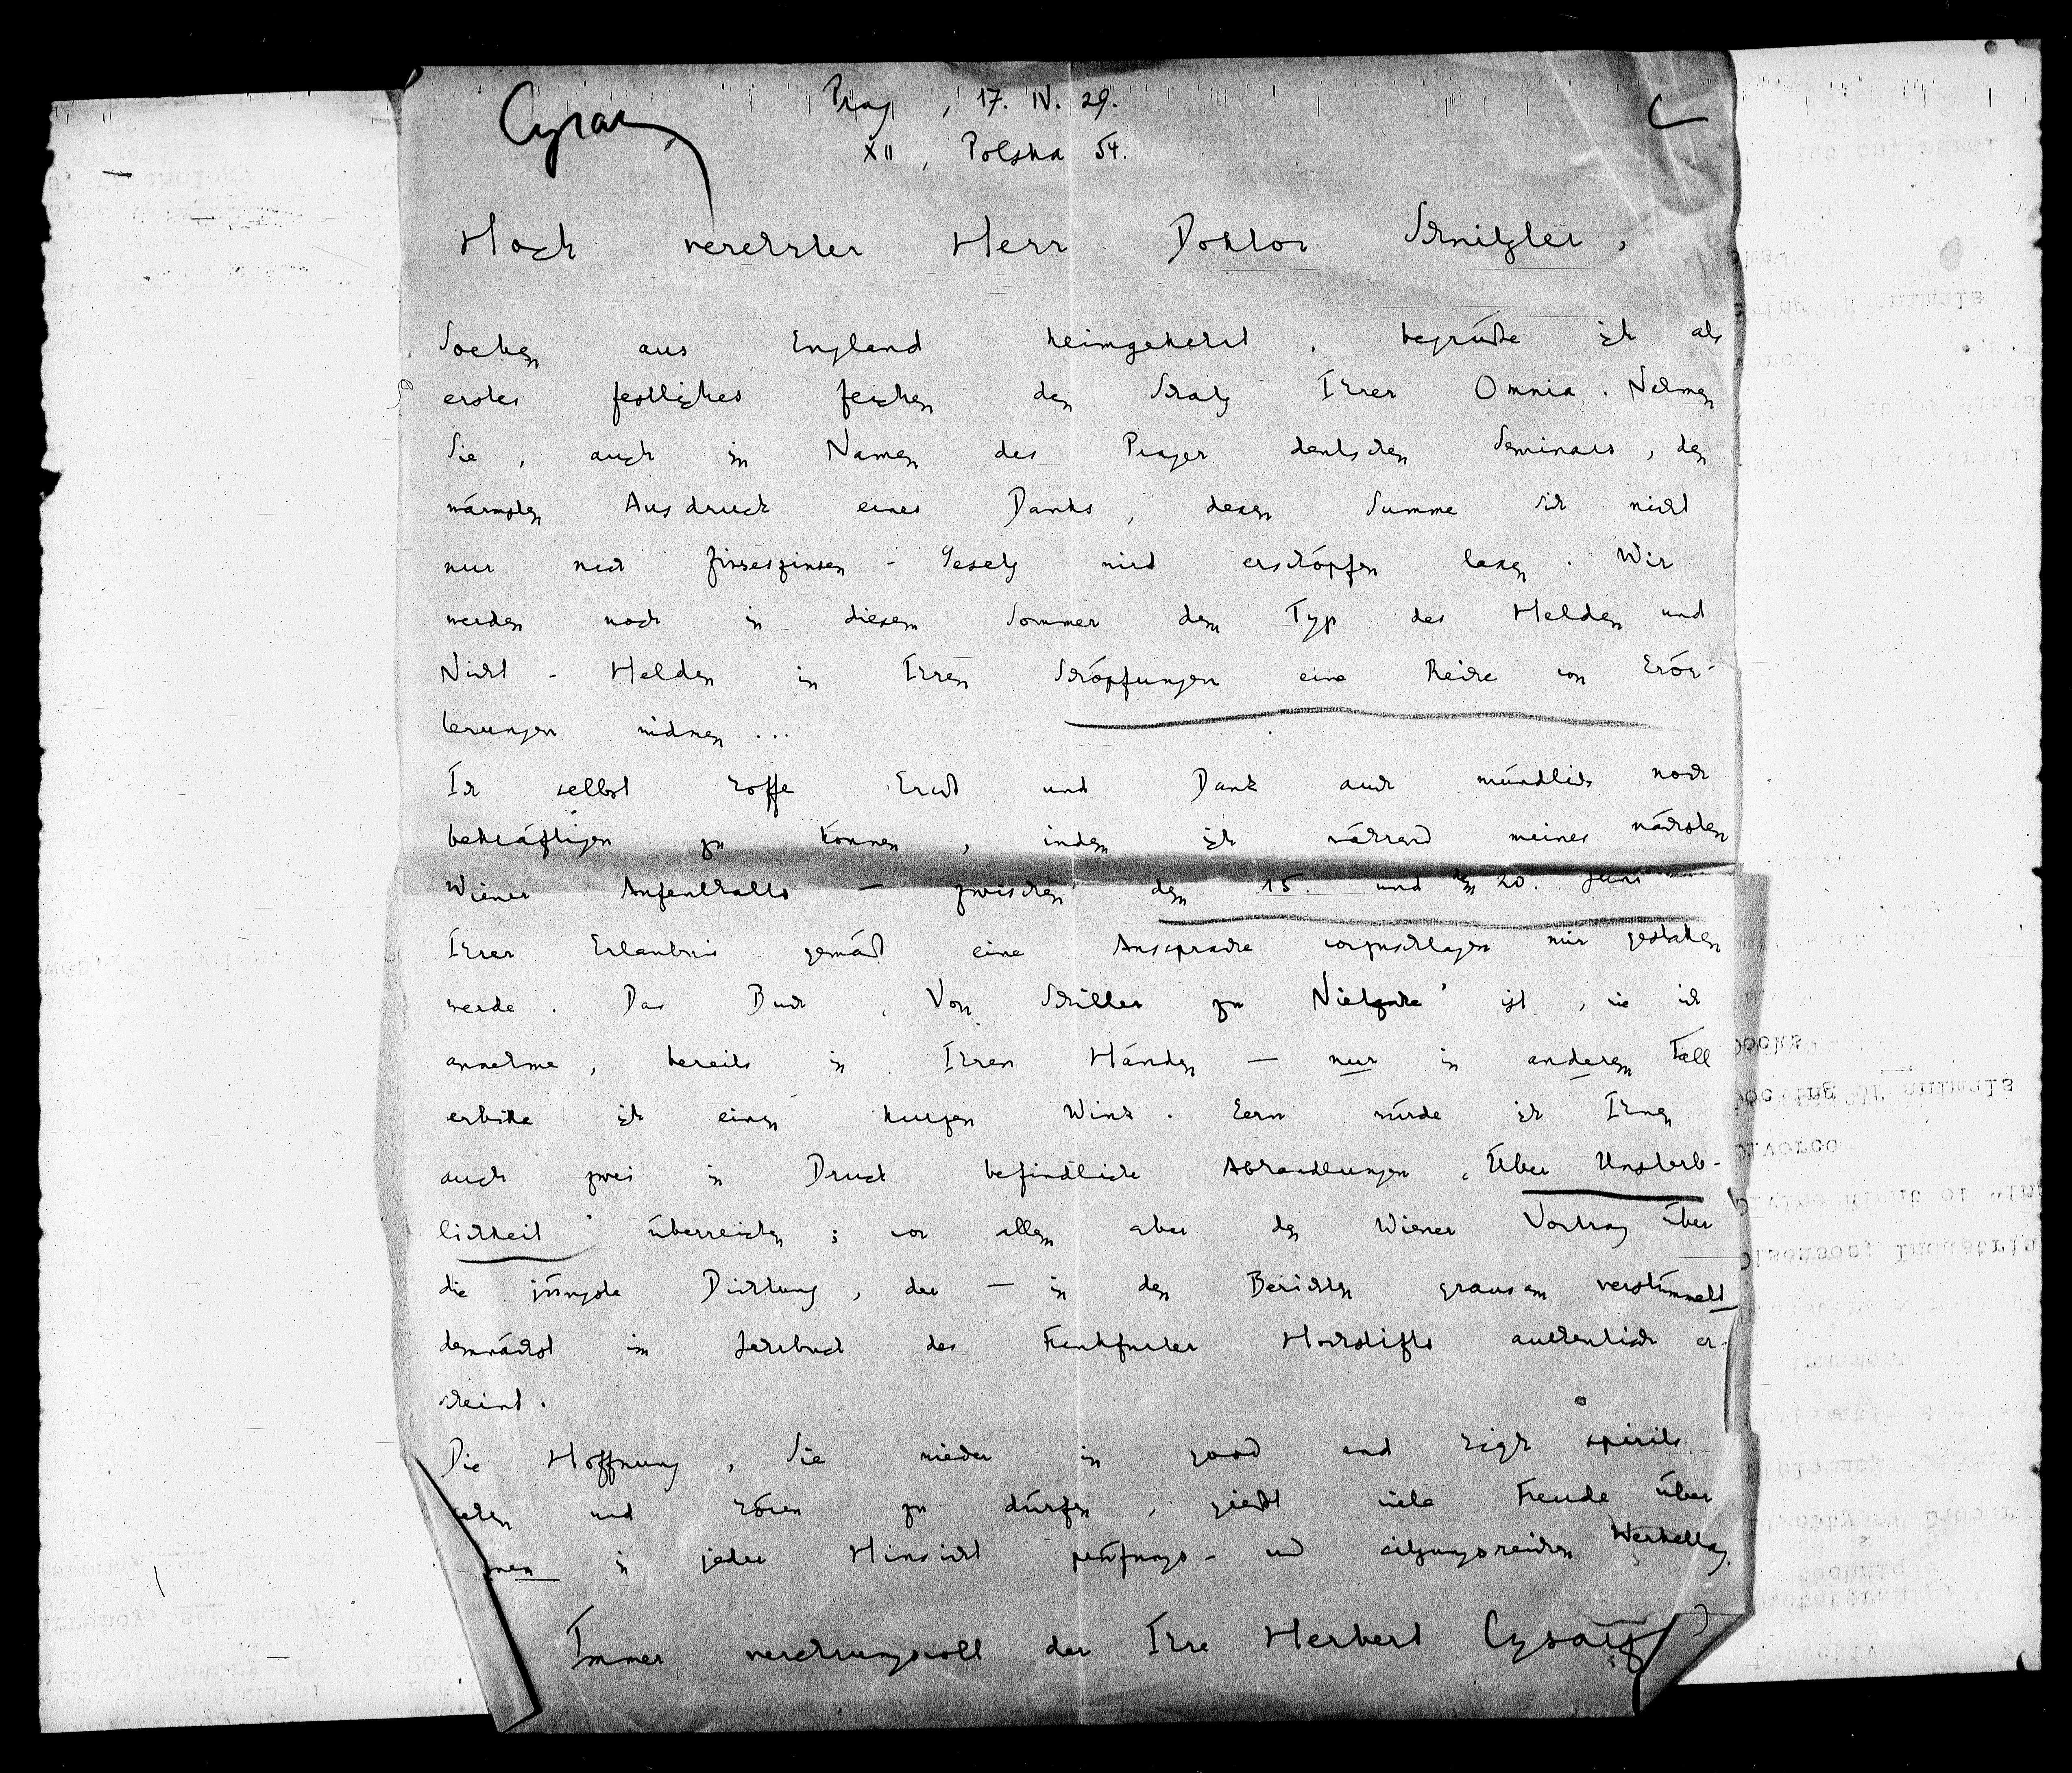 Cysarz
Prag, 17. IV. 29.
XII, Polska 54.
Hoch verehrter Herr Doktor Schnitzler,
Soeben aus England heimgekehrt, begrüße ich als
erstes festliches Zeichen den Schatz Ihrer Omnia. Nehmen
Sie, auch im Namen des Prager deutschen Seminars, den
wärmsten Ausdruck eines Danks, dessen Summe sich nicht
nur nach Zinseszinsen-Gesetz wird erschöpfen lassen. Wir
werden noch in diesem Sommer dem Typ des Helden und
Nicht-Helden in Ihren Schöpfungen eine Reihe von Erör-
terungen widmen...
Ich selbst hoffe und Dank auch mündlich noch
bekräftigen zu können, indem ich während meines nächsten
Wiener Aufenthalts – zwischen dem 15. und dem 20. Juni
Ihrer Erlaubnis gemäß eine Aussprache vorzuschlagen mir gestatten
werde. Das Buch „Von Schiller zu Nietzsche" ist, wie ich
annehme, bereits in Ihren Händen – nur im anderen Fall
erbitte ich einen kurzen Wink. Gern würde ich Ihnen
auch zwei in Druck befindliche Abhandlungen „Über Unsterb-
lichkeit" überreichen; vor allem aber den Wiener Vortrag über
die jüngste Dichtung, der – in den Berichten grausam verstümmelt –
demnächst im Jahrbuch des Frankfurter Hochstifts authentisch er-
scheint.
Die Hoffnung, Sie wieder in good and high spirits
sehen und hören zu dürfen, gießt viele Freude über
meinen in jeder Hinsicht prüfungs- und sitzungsreichen Werkeltag.
Immer verehrungsvoll der Ihre Herbert Cysarz